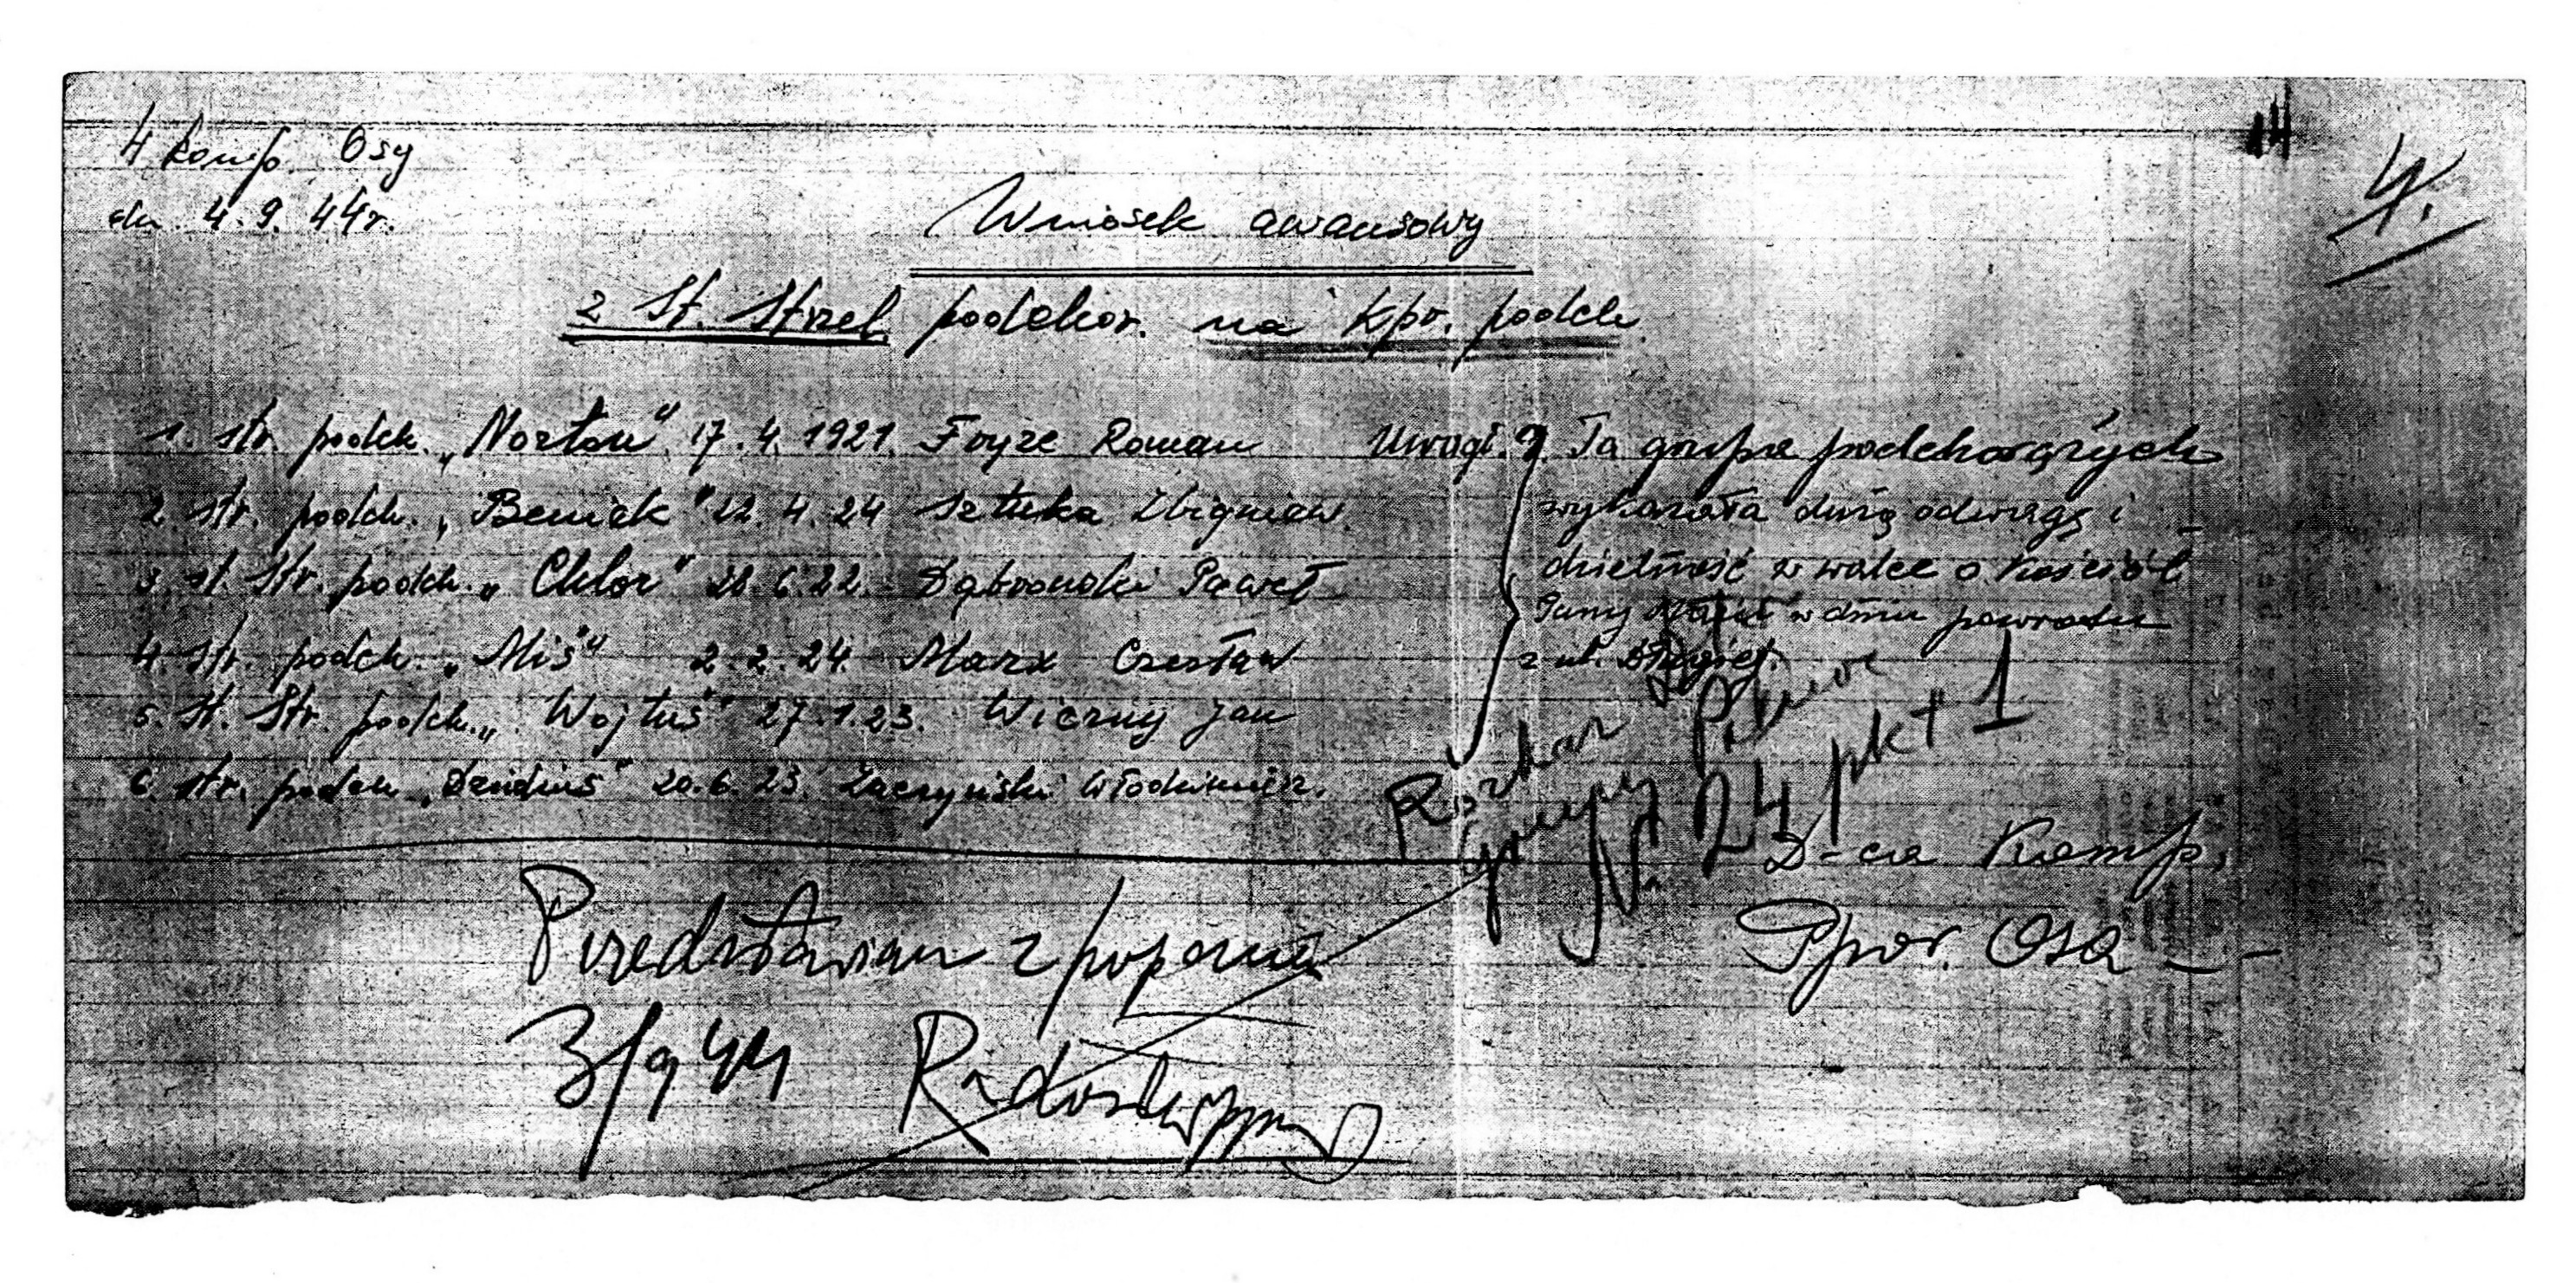 4 komp. Osy
dn. 4.9.44r.
14
4.
Wniosek awansowy
z St. Strzel. podchor. na kpr. podch.
1. str. podch. „Norton" 17.4.1921. Foyze Roman
2. str. podch. „Beniek" 22.4.24 Sztuka Zbigniew.
3. st. str. podch. „Chlor" 28.6.22. Dąbrowski Paweł
4. str. podch. „Miś" 2.2.24. Marx Czesław
5. st. str. podch. „Wojtuś" 27.1.23. Wierny Jan
6. str. podch. „Dziduś" 20.6.23. Łaczyński Włodzimierz.
Uwagi. Ta grupa podchorążych
wykazała dużą odwagę i
dzielność w walce o kościół
Panny w dniu powrotu
z ul. Długiej.
Rozkaz
grupy Północ
Nr. 24 pkt 1
D-ca Komp.
Ppor. Osa
Przedstawiam z poparciem
3/9 44
Radosław ppłk